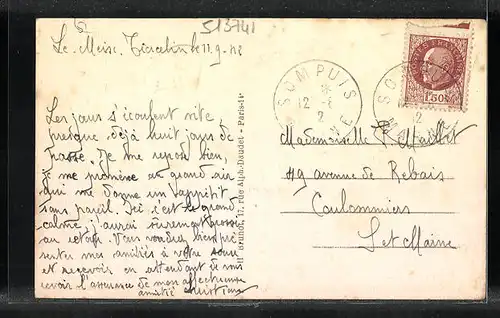 513741
Le Meix Tiercelin le 11.9.42
SOMPUIS
MARNE
POSTES FRANÇAISES
1F50
Les jours s'écoulent vite,
presque déjà huit jours de
passé. Je me repose bien,
me promène au grand air
qui me donne un appétit
sans pareil. Ici c'est le grand
calme j'aurai sûrement grossi
au retour. Vous voudrez bien pré-
senter mes amitiés à votre sœur
et recevoir en attendant de vous
revoir l'assurance de mon affectueuse
amitié
Mademoiselle P.
49 avenue de Rebais
Coulommiers
S et Marne
Brunot, 17, rue Alph.-Daudet - Paris-14e